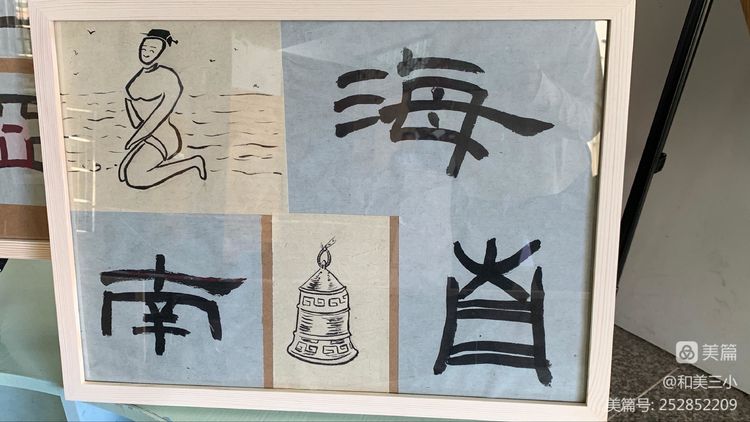 海
南省
美篇
@和美三小
美篇号: 252852209